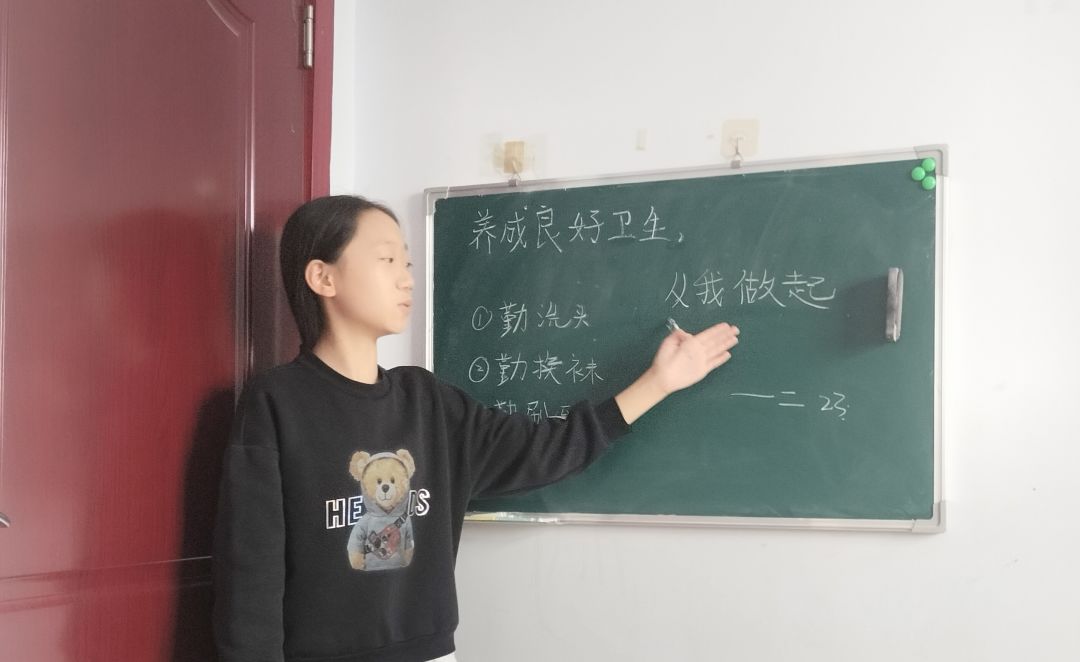 养成良好卫生,
从我做起
①勤洗头
②勤换袜
勤刷
一二
HE
DS